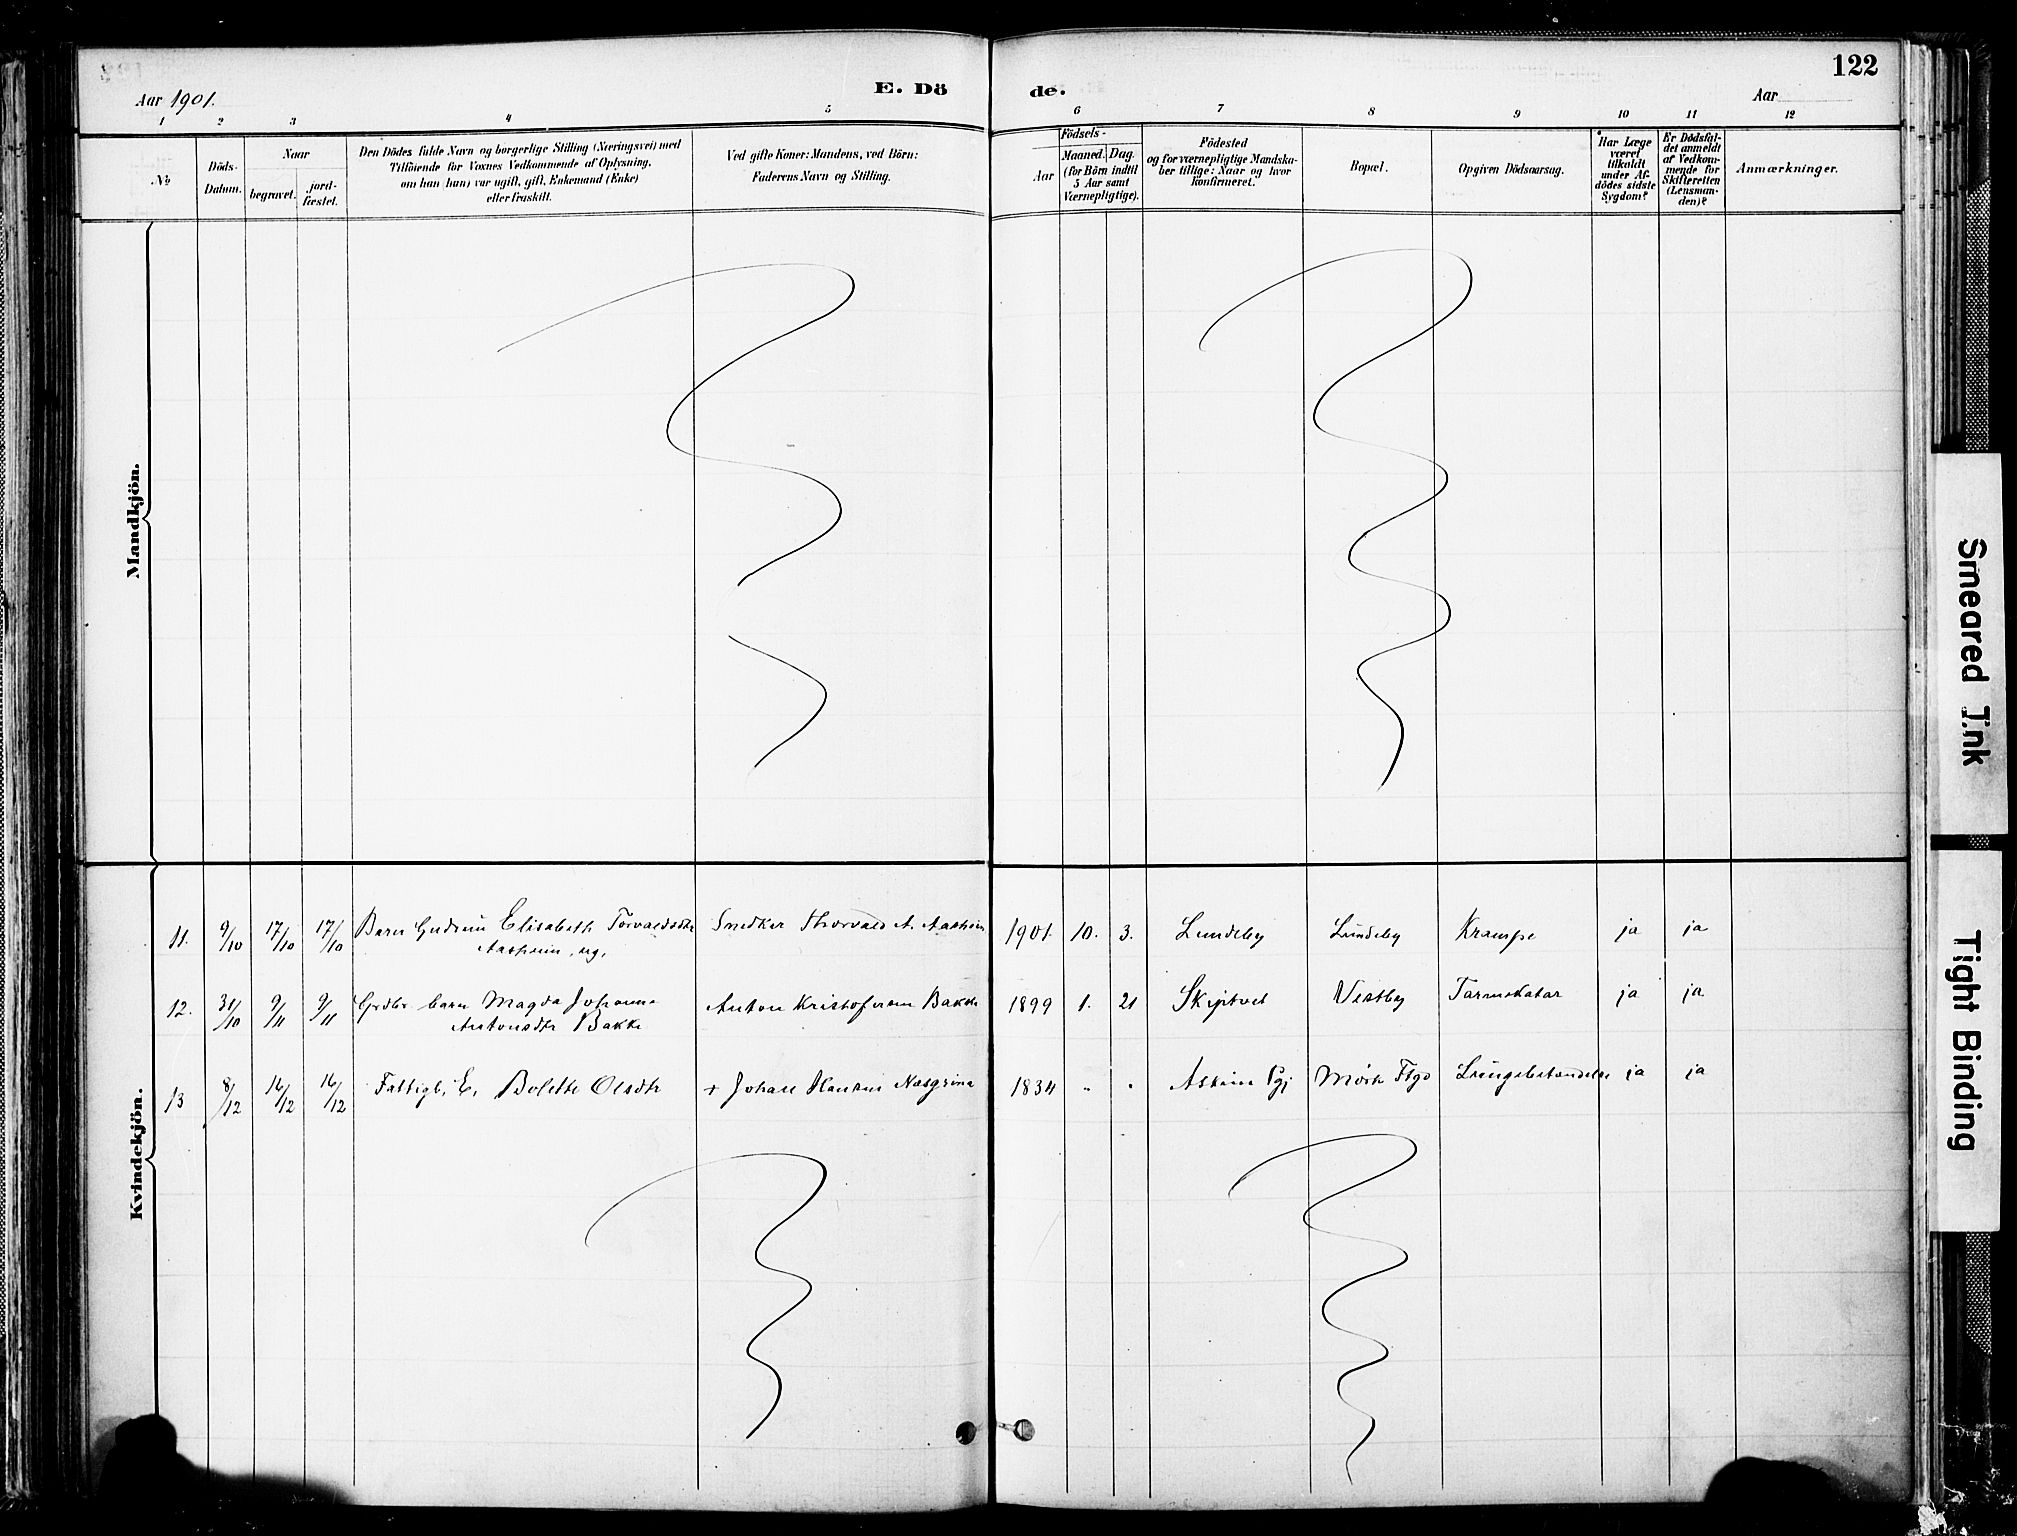 122
Aar 1901.
E. Dö
de.
Aar
1 2 3 4 5
6 7 8 9 10 11 12
No
Döds-
Datum.
Naar
begravet.
jord-
fæstet.
Den Dödes fulde Navn og borgerlige Stilling (Næringsvei) med
Tilföiende for Voxnes Vedkommende af Oplysning,
om han (hun) var ugift, gift, Enkemand (Enke)
eller fraskilt.
Ved gifte Koner: Mandens, ved Börn:
Faderens Navn og Stilling.
Födsels-
Aar
Maaned.
Dag.
(for Börn indtil
5 Aar samt
Værnepligtige).
Födested
og for værnepligtige Mandska-
ber tillige: Naar og hvor
konfirmeret.
Bopæl.
Opgiven Dödsaarsag.
Har Læge
været
tilkaldt
under Af-
dödes sidste
Sygdom?
Er Dödsfal-
det anmeldt
af Vedkom-
mende for
Skifteretten
(Lensman-
den)?
Anmærkninger.
Mandkjön.
Kvindekjön.
11. 9/10 17/10 17/10 Barn Gudrun Elisabeth Torvaldsdtr Snedker Thorvald A. Aasheim 1901. 10. 3. Lundeby Lundeby Krampe ja ja
Aasheim, ug.
12. 31/10 9/11 9/11 Grdbr. barn Magda Johanne Anton Kristofersen Bakke 1899 1. 21 Skiptvet Vestby Tarmkatar ja ja
Antonsdtr Bakke
13 8/12 16/12 16/12 Fattigl. E. Bolette Olsdtr + Johan Hansen 1834 " " Askim Pgj Mörk ja ja
Smeared Ink
Tight Binding